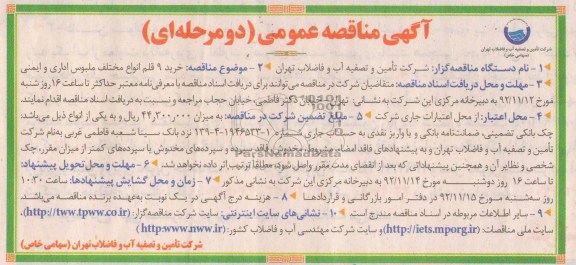 آگهی مناقصه عمومی (دو مرحله‌ای)
شرکت تأمین و تصفیه آب و فاضلاب تهران
(سهامی خاص)
۱- نام دستگاه مناقصه‌گزار: شرکت تأمین و تصفیه آب و فاضلاب تهران ۲- موضوع مناقصه: خرید ۹ قلم انواع مختلف ملبوس اداری و ایمنی
۳- مهلت و محل دریافت اسناد مناقصه: متقاضیان شرکت در مناقصه می‌توانند برای دریافت اسناد مناقصه با معرفی‌نامه معتبر حداکثر تا ساعت ۱۶ روز شنبه
مورخ ۹۲/۱۱/۱۲ به دبیرخانه مرکزی این شرکت به نشانی: تهران، دکتر فاطمی، خیابان حجاب مراجعه و نسبت به دریافت اسناد مناقصه اقدام نمایند.
۴- محل اعتبار: از محل اعتبارات جاری شرکت ۵- مبلغ تضمین شرکت در مناقصه: به میزان ۴۴٫۳۰۰٫۰۰۰ ریال و به یکی از انواع ذیل می‌باشد:
چک بانکی تضمینی، ضمانت‌نامه بانکی و یا واریز نقدی به حساب جاری شماره ۱۳۹-۴-۱۹۴۶۵۳۳-۱ نزد بانک سینا شعبه فاطمی غربی به‌نام شرکت
تأمین و تصفیه آب و فاضلاب تهران و به پیشنهادهای فاقد امضاء، مشروط، مخدوش، فاقد سپرده و سپرده‌های مخدوش یا سپرده‌های کمتر از میزان مقرر، چک
شخصی و نظایر آن و همچنین پیشنهاداتی که بعد از انقضای مدت مقرر واصل شود، مطلقاً ترتیب اثر داده نخواهد شد. ۶- مهلت و محل تحویل پیشنهاد:
تا ساعت ۱۶ روز دوشنبه مورخ ۹۲/۱۱/۱۴ به دبیرخانه مرکزی این شرکت به نشانی مذکور ۷- زمان و محل گشایش پیشنهادها: ساعت ۱۰:۳۰
روز سه‌شنبه مورخ ۹۲/۱۱/۱۵ در دفتر امور بازرگانی و قراردادها ۸- هزینه درج آگهی در یک نوبت به‌عهده برنده مناقصه می‌باشد
۹- سایر اطلاعات مربوطه در اسناد مناقصه مندرج است ۱۰- نشانی‌های سایت اینترنتی: سایت شرکت مناقصه‌گزار: (http://tww.tpww.co.ir)،
سایت ملی مناقصات: (http://iets.mporg.ir) و سایت شرکت مهندسی آب و فاضلاب کشور: (http:www.nww.ir)
شرکت تأمین و تصفیه آب و فاضلاب تهران (سهامی خاص)
ParsNamadData